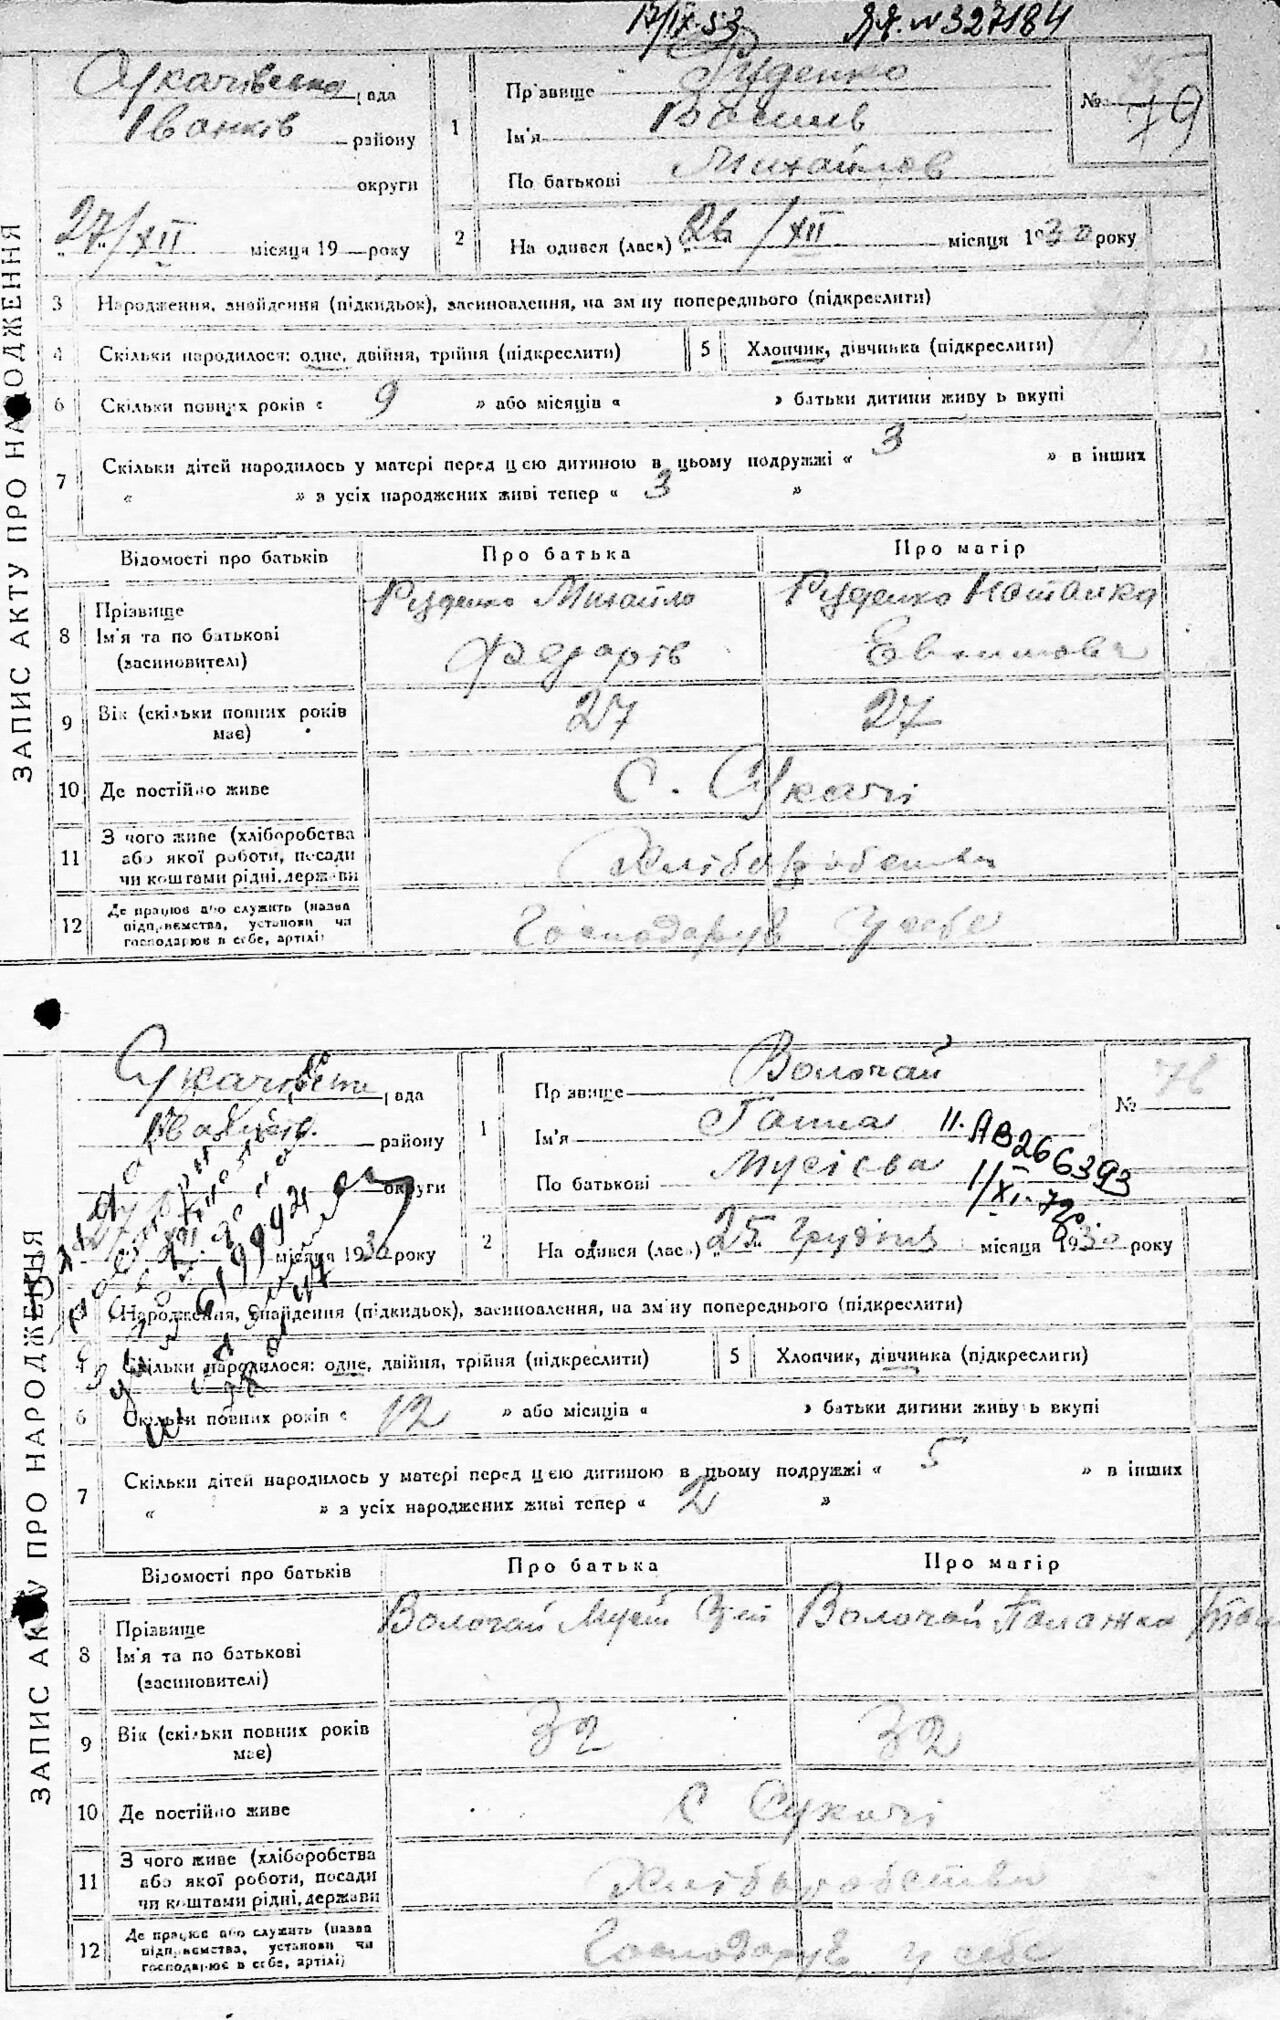 17/IX-53 ЯЯ. № 327184
ЗАПИС АКТУ ПРО НАРОДЖЕННЯ
Сукачівська рада
Іванків району
округи
27/XII місяця 19 року
1
Прізвище Руденко
Ім'я Василь
По батькові Михайлов
№ 79
2
На одився (лася) 26/XII місяця 1930 року
3 Народження, знайдення (підкидьок), засиновлення, на зм ну попереднього (підкреслити)
4 Скільки народилося: одне, двійня, трійня (підкреслити)
5 Хлопчик, дівчинка (підкреслити)
6 Скільки повних років « 9 » або місяців « » батьки дитини живу ь вкупі
7 Скільки дітей народилось у матері перед цією дитиною в цьому подружжі « 3 » в інших
« » з усіх народжених живі тепер « 3 »
Відомості про батьків Про батька Про матір
8 Прізвище Ім'я та по батькові (засиновителі)
Руденко Михайло Федорів
Руденко Наталка
9 Вік (скільки повних років має) 27 27
10 Де постійно живе С. Сукачі
11 З чого живе (хліборобства або якої роботи, посади чи коштами рідні, держави
Хліборобства
12 Де працює або служить (назва підприємства, установи чи господарює в себе, артілі)
Господарув у себе
ЗАПИС АКТУ ПРО НАРОДЖЕННЯ
Сукачівська рада
району
округи
місяця 1930 року
1
Прізвище Волочай
Ім'я Ганна
По батькові Мусієва
II-АВ 266393
1/XI-72
№ 76
2
На одився (лась) 25 грудня місяця 1930 року
Народження, знайдення (підкидьок), засиновлення, на зм ну попереднього (підкреслити)
4 Скільки народилося: одне, двійня, трійня (підкреслити)
5 Хлопчик, дівчинка (підкреслити)
6 Скільки повних років « 12 » або місяців « » батьки дитини живу ь вкупі
7 Скільки дітей народилось у матері перед цією дитиною в цьому подружжі « 5 » в інших
« » з усіх народжених живі тепер « 2 »
Відомості про батьків Про батька Про матір
8 Прізвище Ім'я та по батькові (засиновителі)
Волочай Мусій
Волочай Палажка
9 Вік (скільки повних років має) 32 32
10 Де постійно живе С Сукачі
11 З чого живе (хліборобства або якої роботи, посади чи коштами рідні, держави
Хліборобства
12 Де працює або служить (назва підприємства, установи чи господарює в себе, артілі)
Господарув у себе